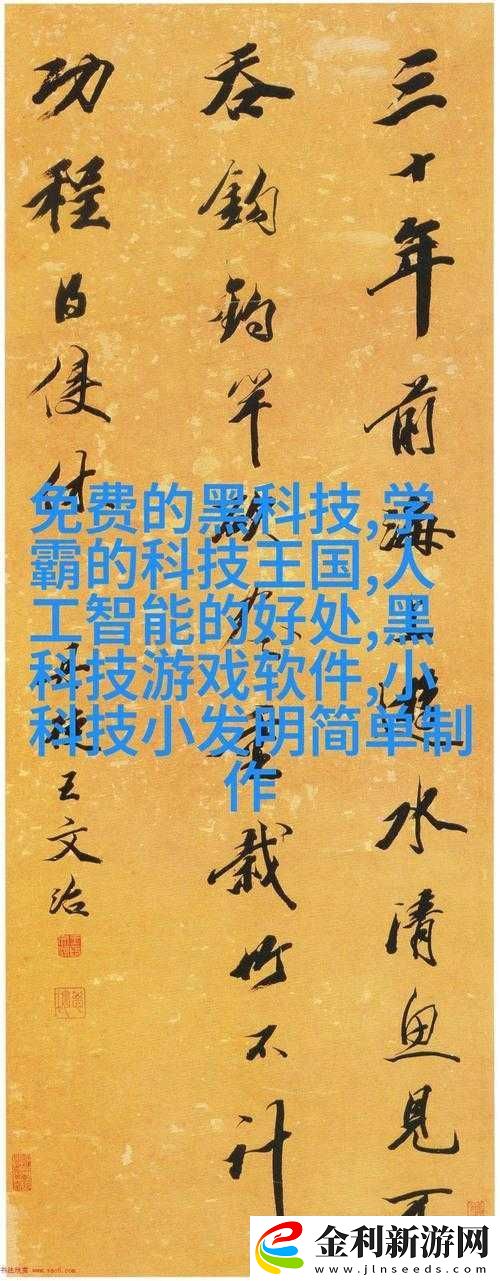 三十年前海遊水清魚見不
吞鉤釣竿重栽竹不計
功程便休
王文治
免费的黑科技,学
霸的科技王国,人
工智能的好处,黑
科技游戏软件,小
科技小发明简单制
作
金利新游网
www.jlnseeds.com